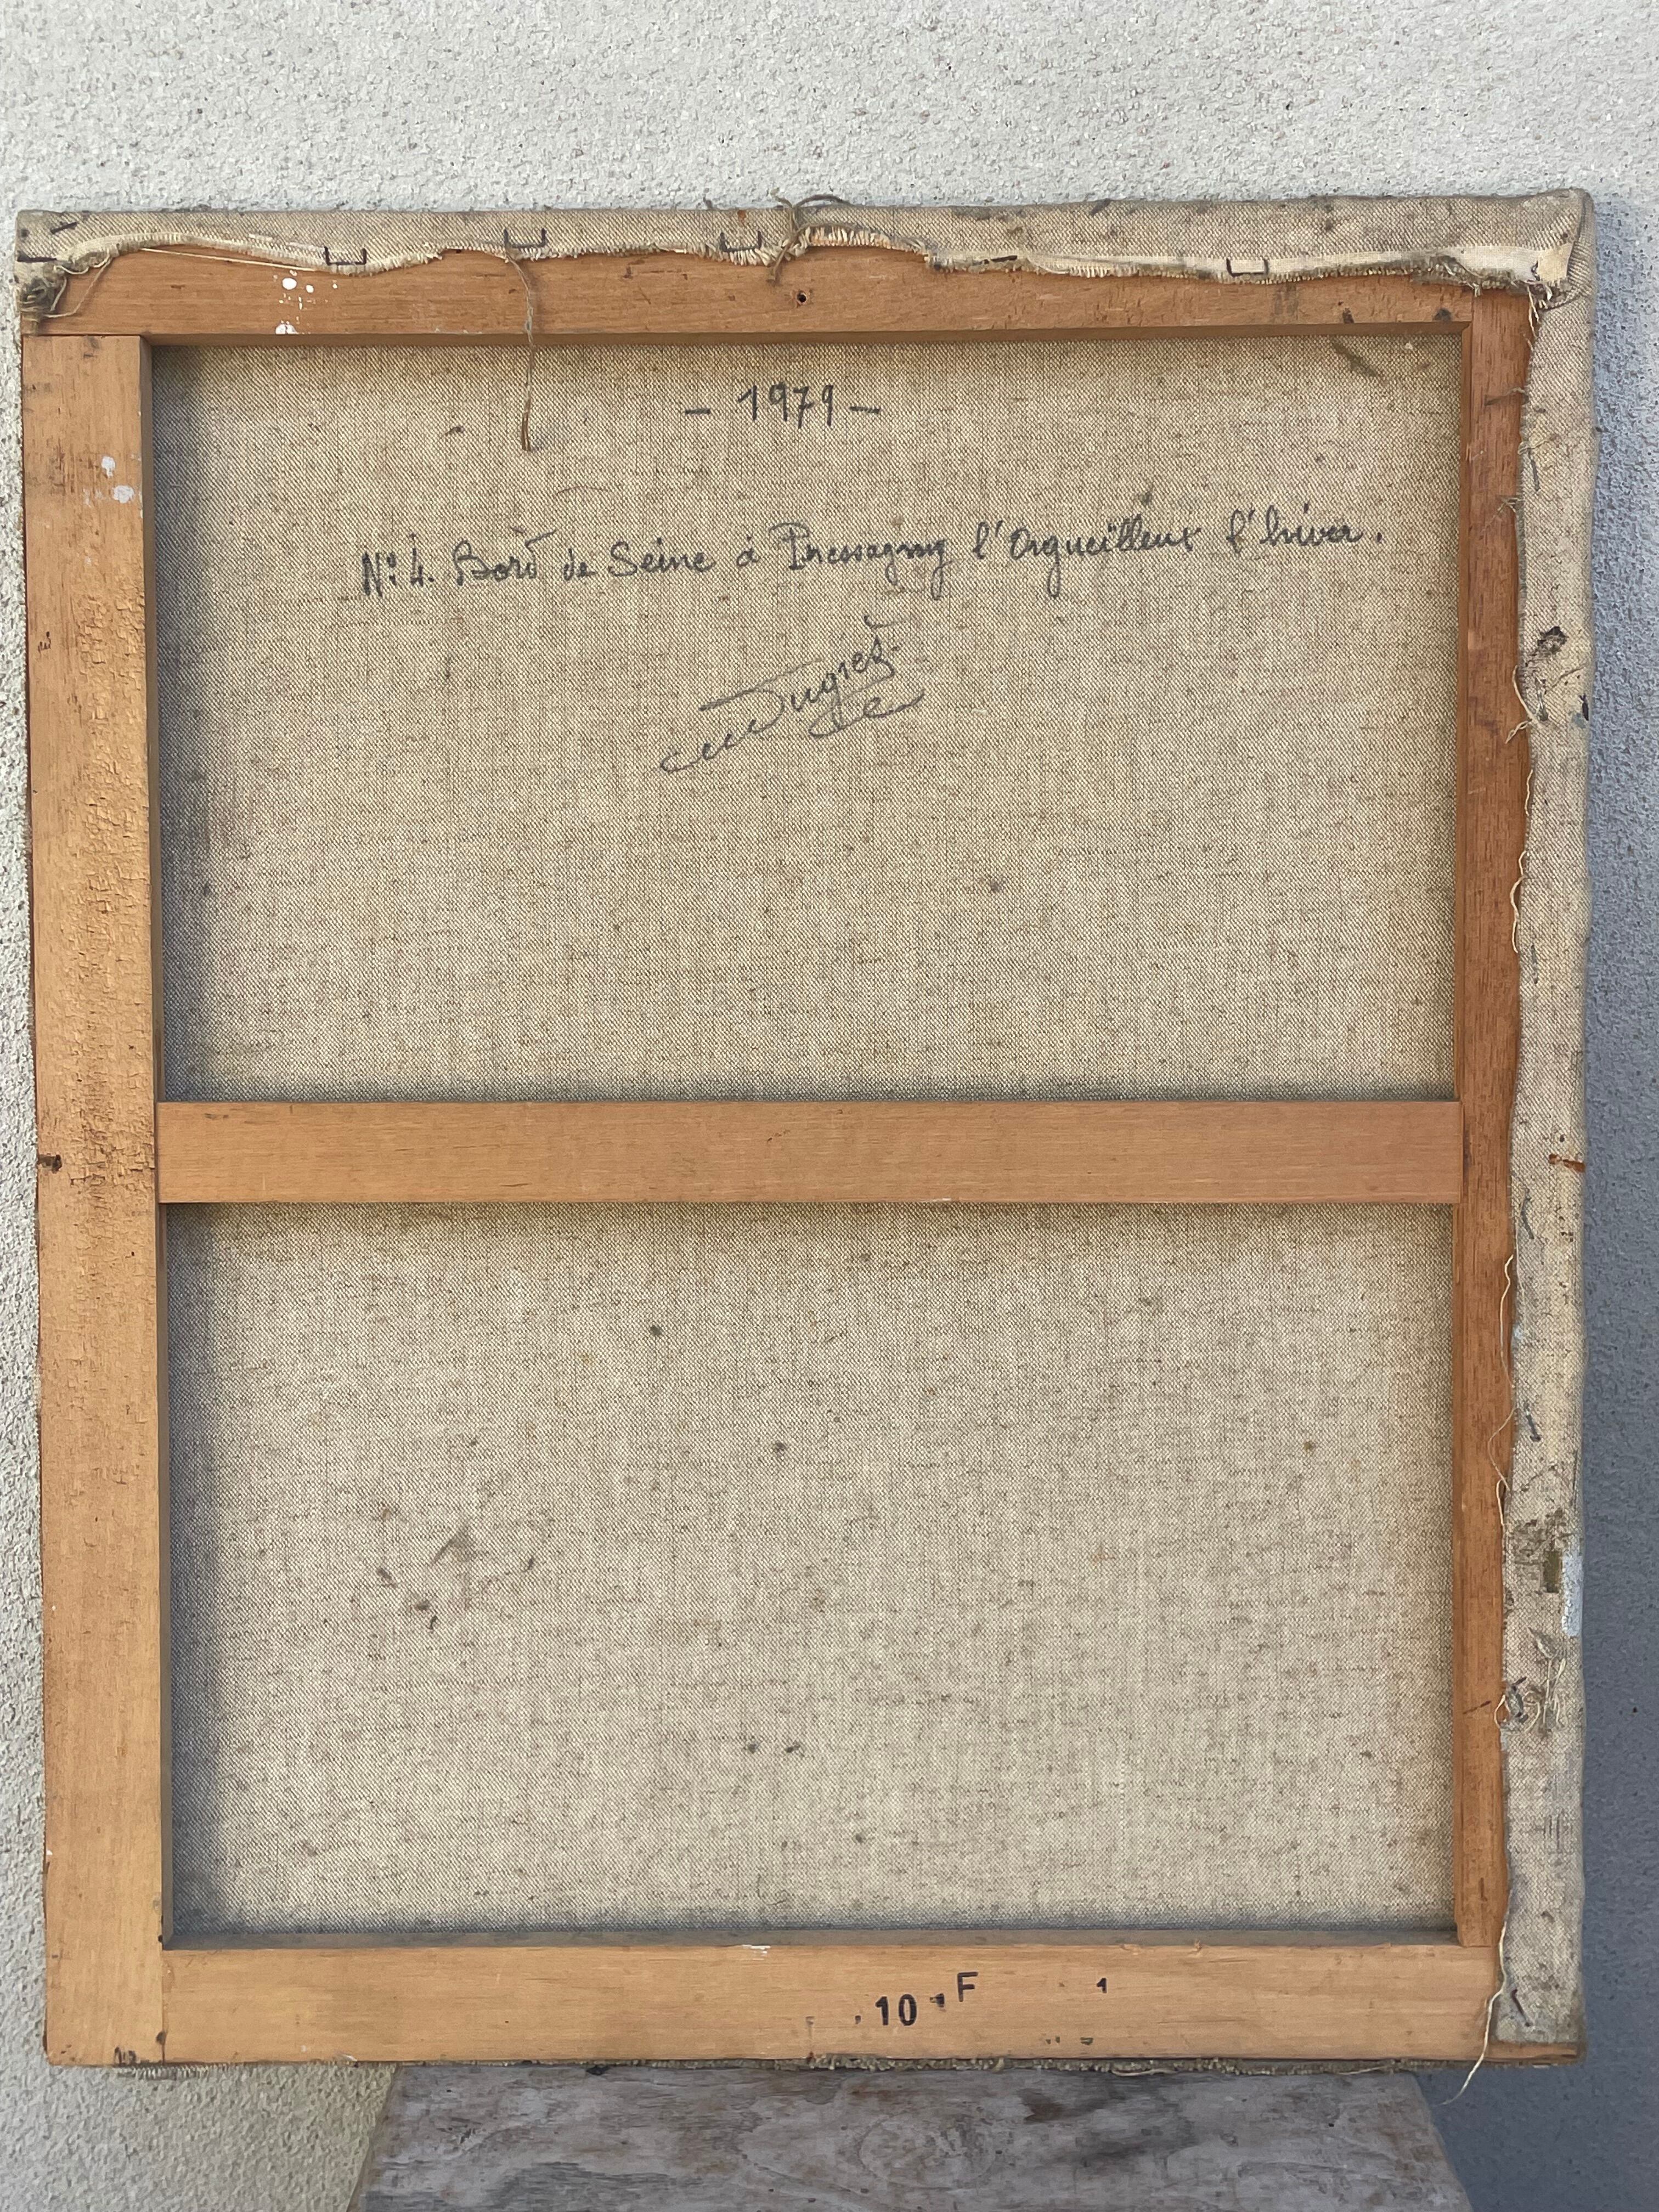 - 1979 -
N: 4. Bord de Seine à Pressagny l'Orgueilleux l'hiver.
10 F 1